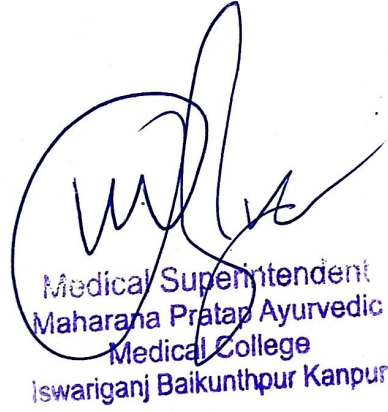 Medical Superintendent
Maharana Pratap Ayurvedic
Medical College
Iswariganj Baikunthpur Kanpur